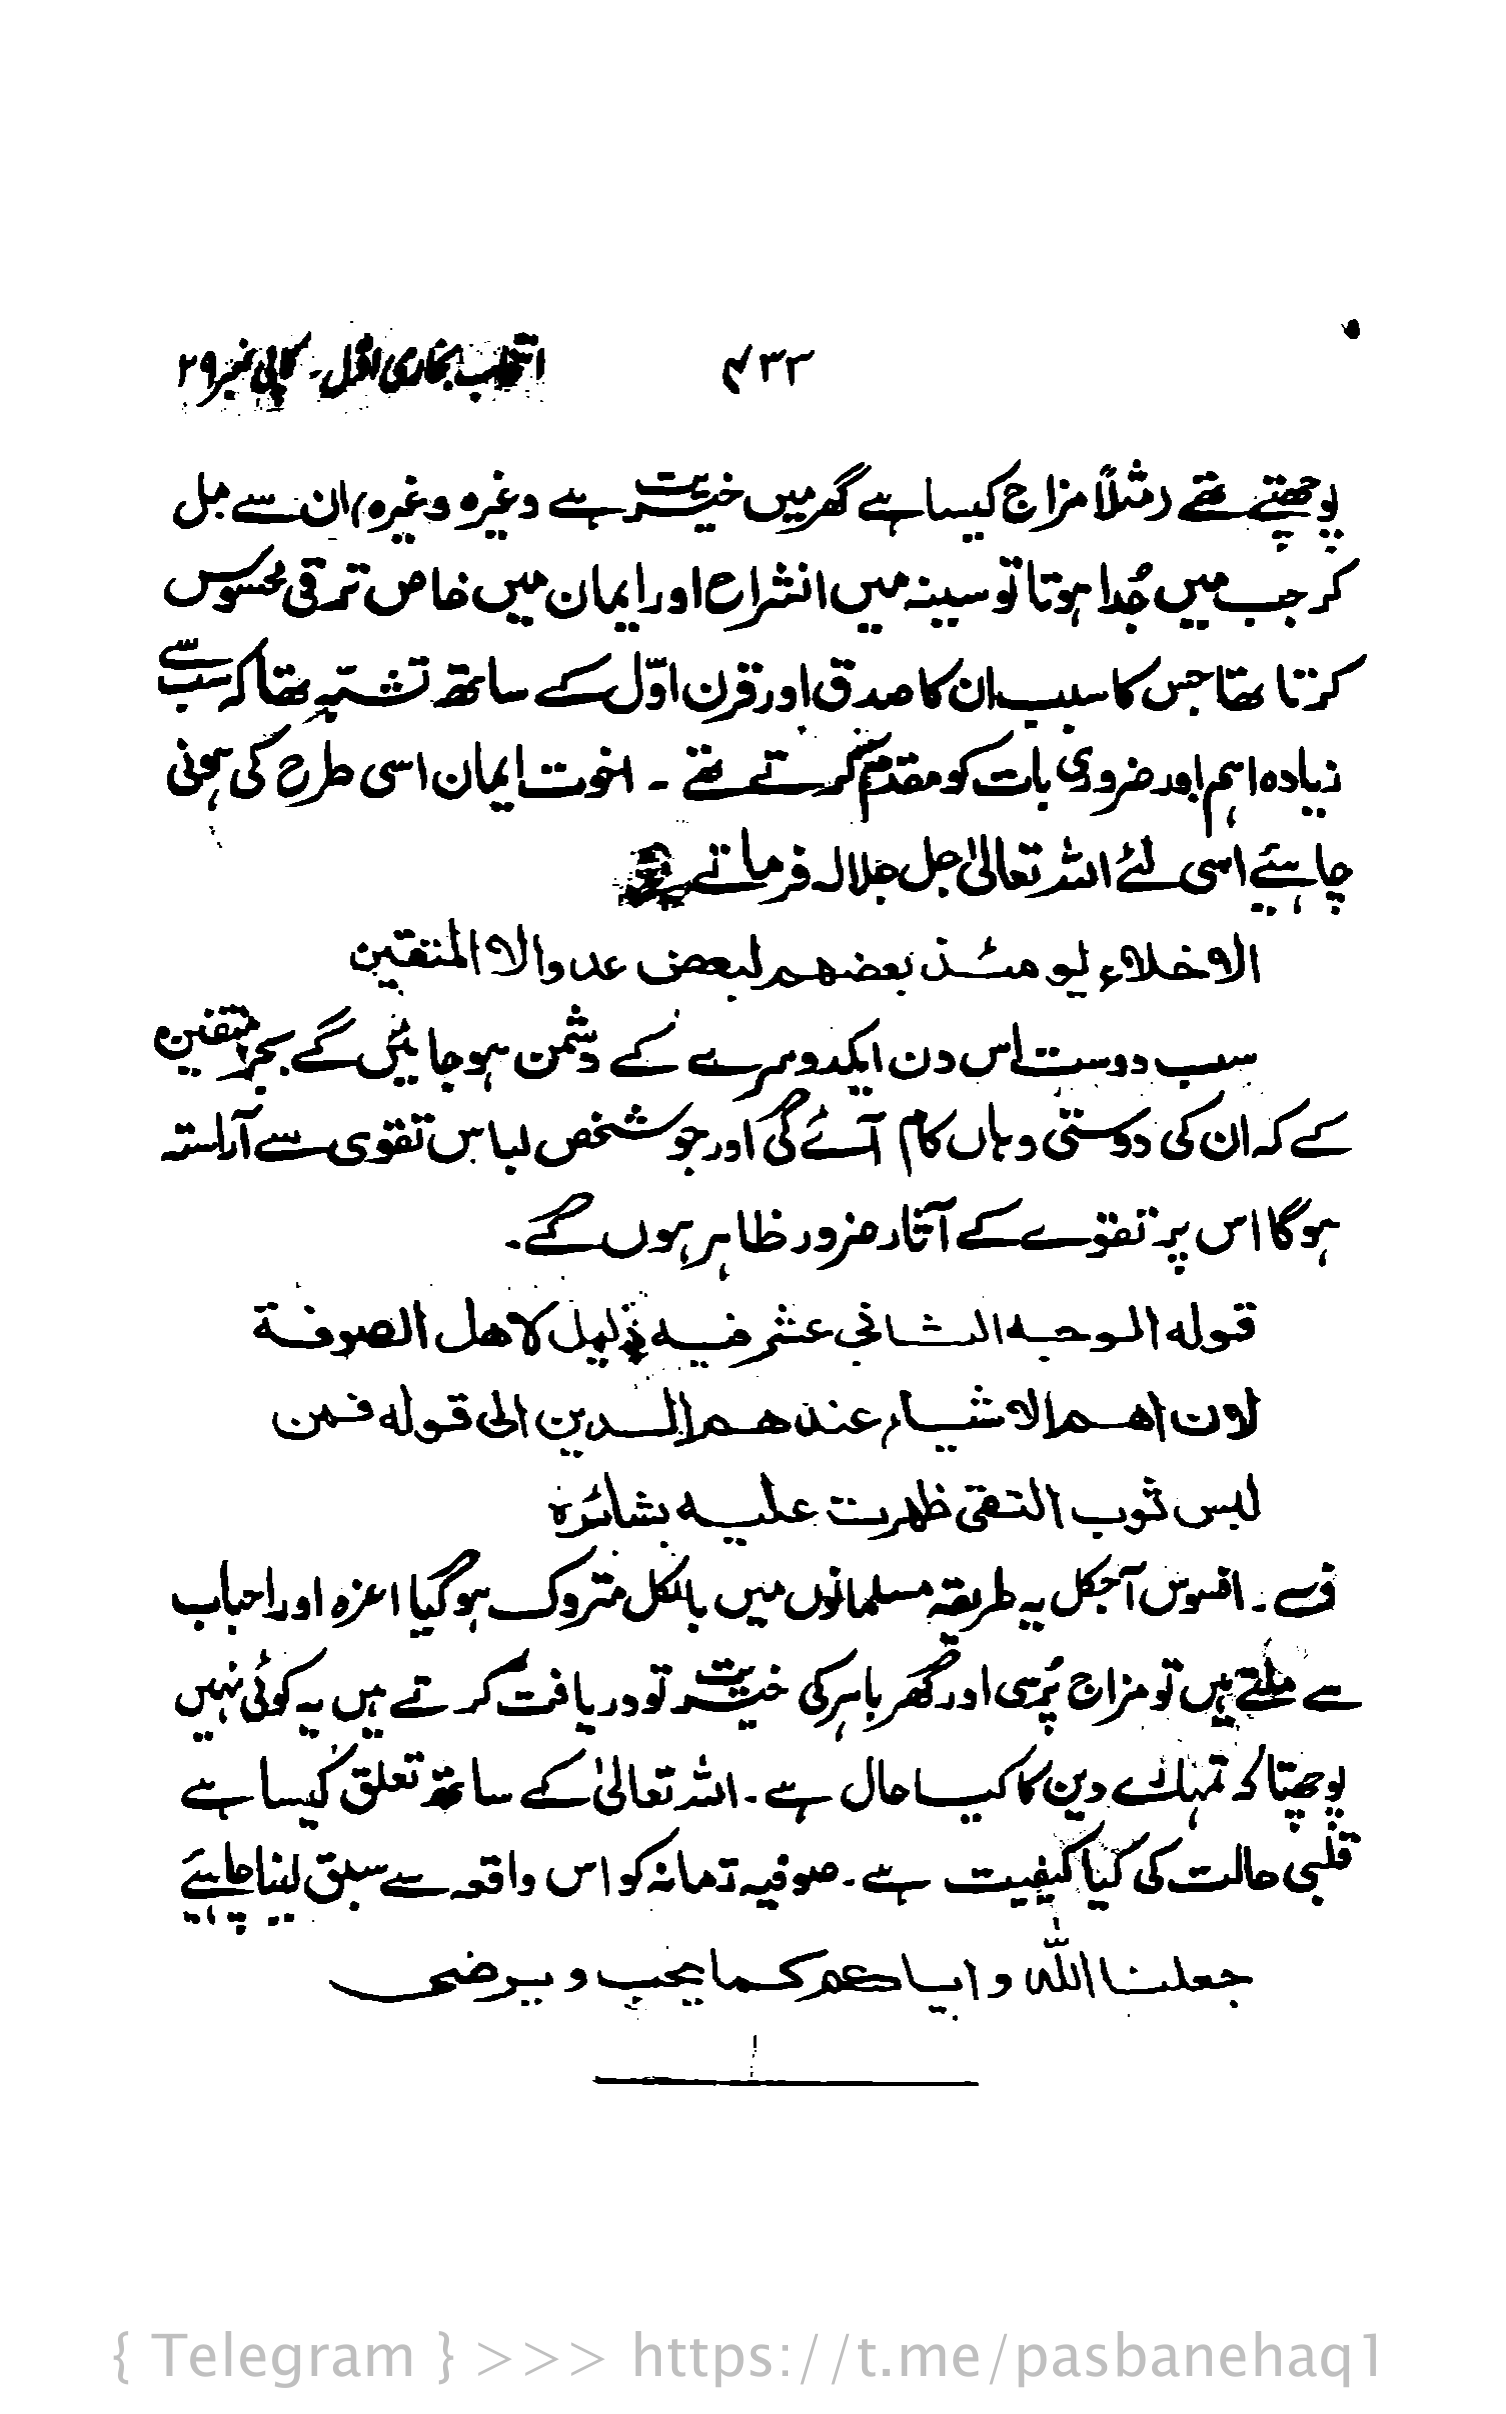 ۴۳۳
انتخاب بخاری اول۔ کاپی نمبر ۲۹
پوچھتے تھے (مثلاً مزاج کیسا ہے گھر میں خیریت ہے وغیرہ وغیرہ) ان سے مل
کر جب میں جُدا ہوتا تو سینہ میں انشراح اور ایمان میں خاص ترقی محسوس
کرتا تھا جس کا سبب ان کا صدق اور قرن اوّل کے ساتھ تشبہ تھا کہ سب سے
زیادہ اہم اور ضروری بات کو مقدم کرتے تھے ۔ اخوت ایمان اسی طرح کی ہونی
چاہیئے اسی لئے اللہ تعالیٰ جل جلالہ فرماتے
الاخلاء یومئذ بعضھم لبعض عدو الا المتقین
سب دوست اس دن ایکدوسرے کے دشمن ہو جائیں گے بجز متقین
کے کہ ان کی دوستی وہاں کام آئے گی اور جو شخص لباس تقوی سے آراستہ
ہوگا اس پر تقوے کے آثار ضرور ظاہر ہوں گے۔
قوله الوجه الثانی عشر فیه دلیل لاهل الصوفة
لان اهم الاشیاء عندهم الدین الی قوله فمن
لبس ثوب التقی ظهرت علیه بشائره
ف ۔ افسوس آجکل یہ طریقہ مسلمانوں میں بالکل متروک ہوگیا اعزہ اور احباب
سے ملتے ہیں تو مزاج پُرسی اور گھر باہر کی خیریت تو دریافت کرتے ہیں یہ کوئی نہیں
پوچھتا کہ تمہارے دین کا کیسا حال ہے۔ اللہ تعالیٰ کے ساتھ تعلق کیسا ہے
قلبی حالت کی کیا کیفیت ہے۔ صوفیہ زمانہ کو اس واقعہ سے سبق لینا چاہیئے
جعلنا اللّٰه و ایاکم کما یحب و یرضی
{ Telegram } >>> https://t.me/pasbanehaq1